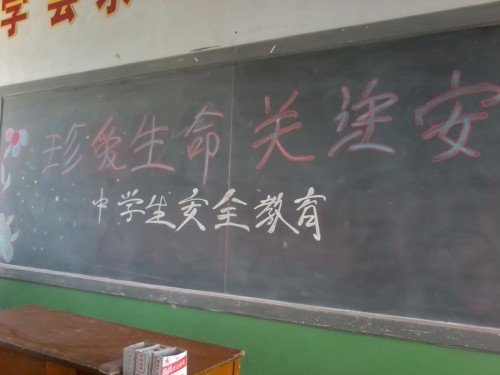 学会
珍爱生命 关 安
中学生安全教育